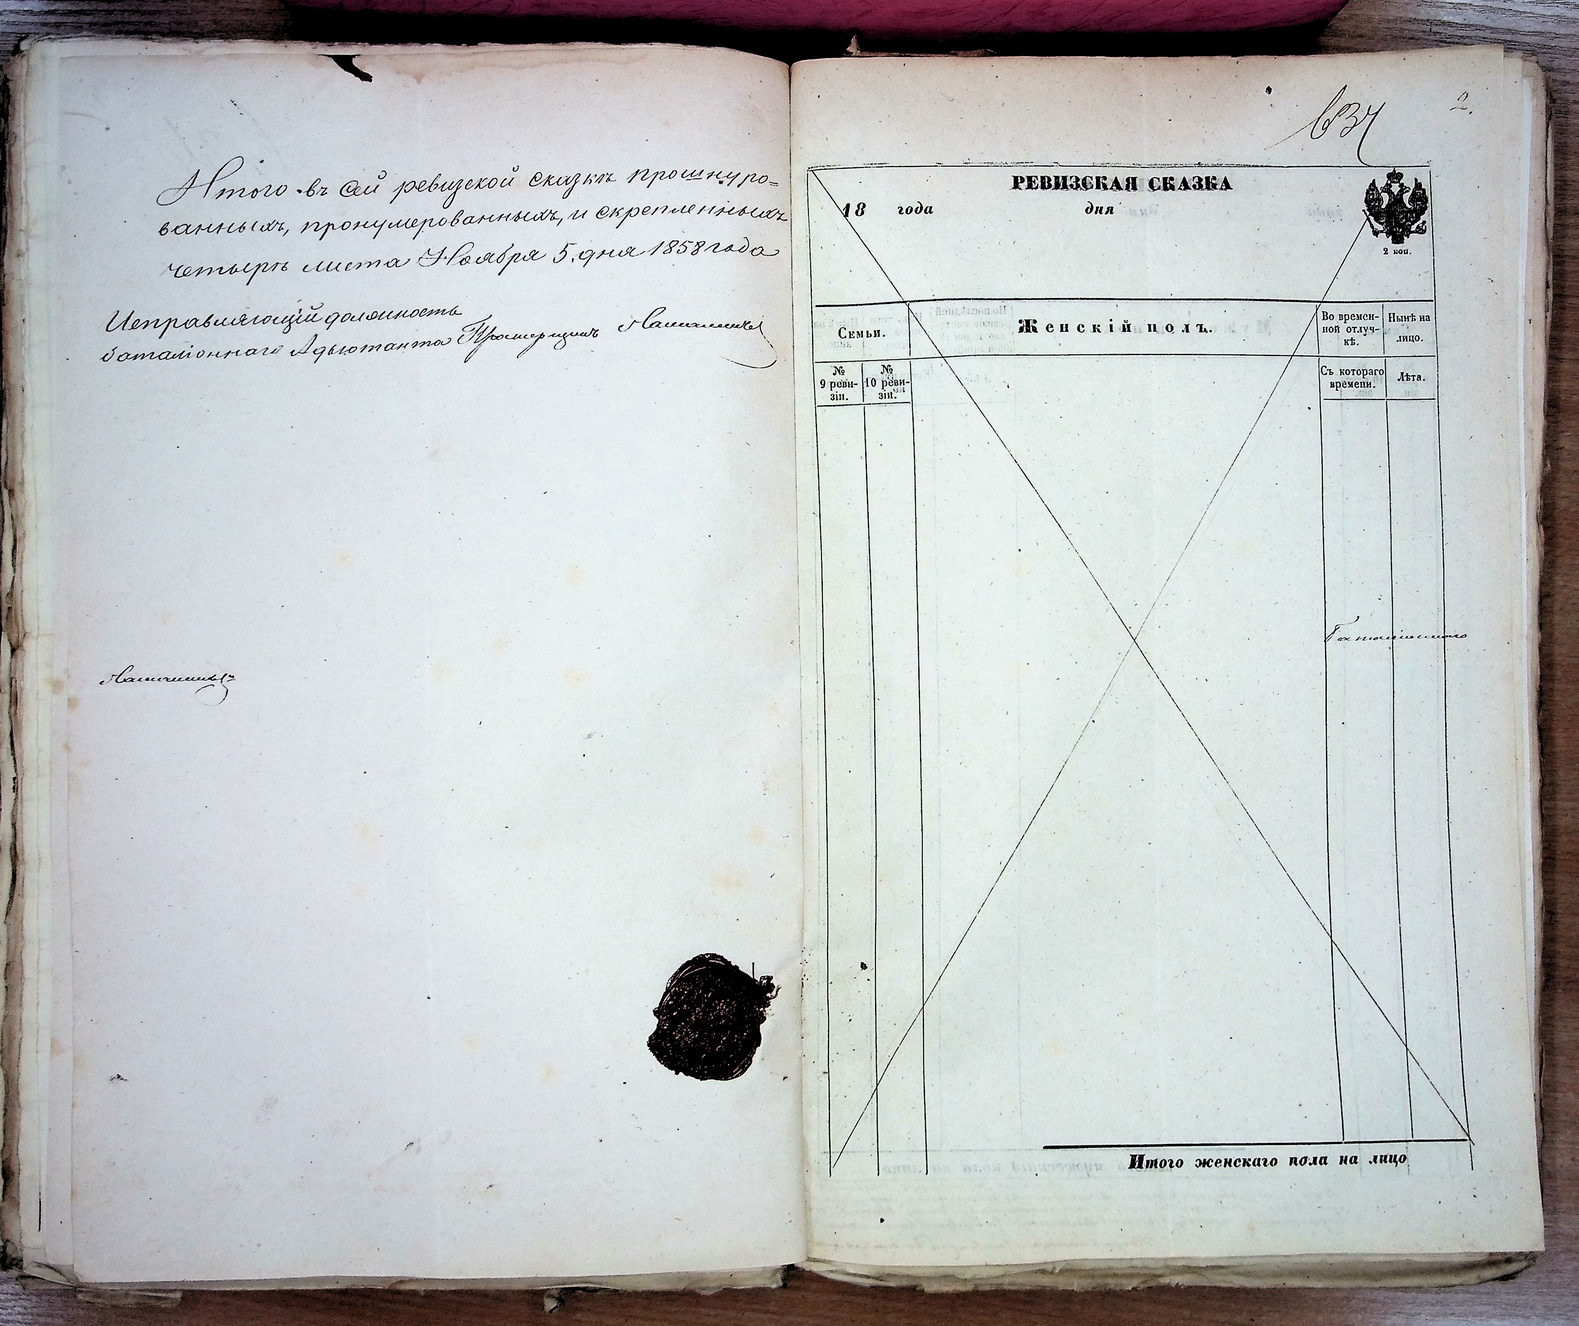 Итого въ сей ревизской сказкѣ прошнуро=
ванныхъ, пронумерованныхъ, и скрепленныхъ
четырѣ листа Ноября 5. дня 1858 года
Исправляющій должность
баталіоннаго Адьютанта Прапорщикъ
2.
РЕВИЗСКАЯ СКАЗКА
18 года дня
2 коп.
Семьи.
Женскій полъ.
Во времен-
ной отлуч-
кѣ.
Нынѣ на
лицо.
№
9 реви-
зіи.
№
10 реви-
зіи.
Съ котораго
времени.
Лѣта.
Баталіоннаго
Итого женскаго пола на лицо